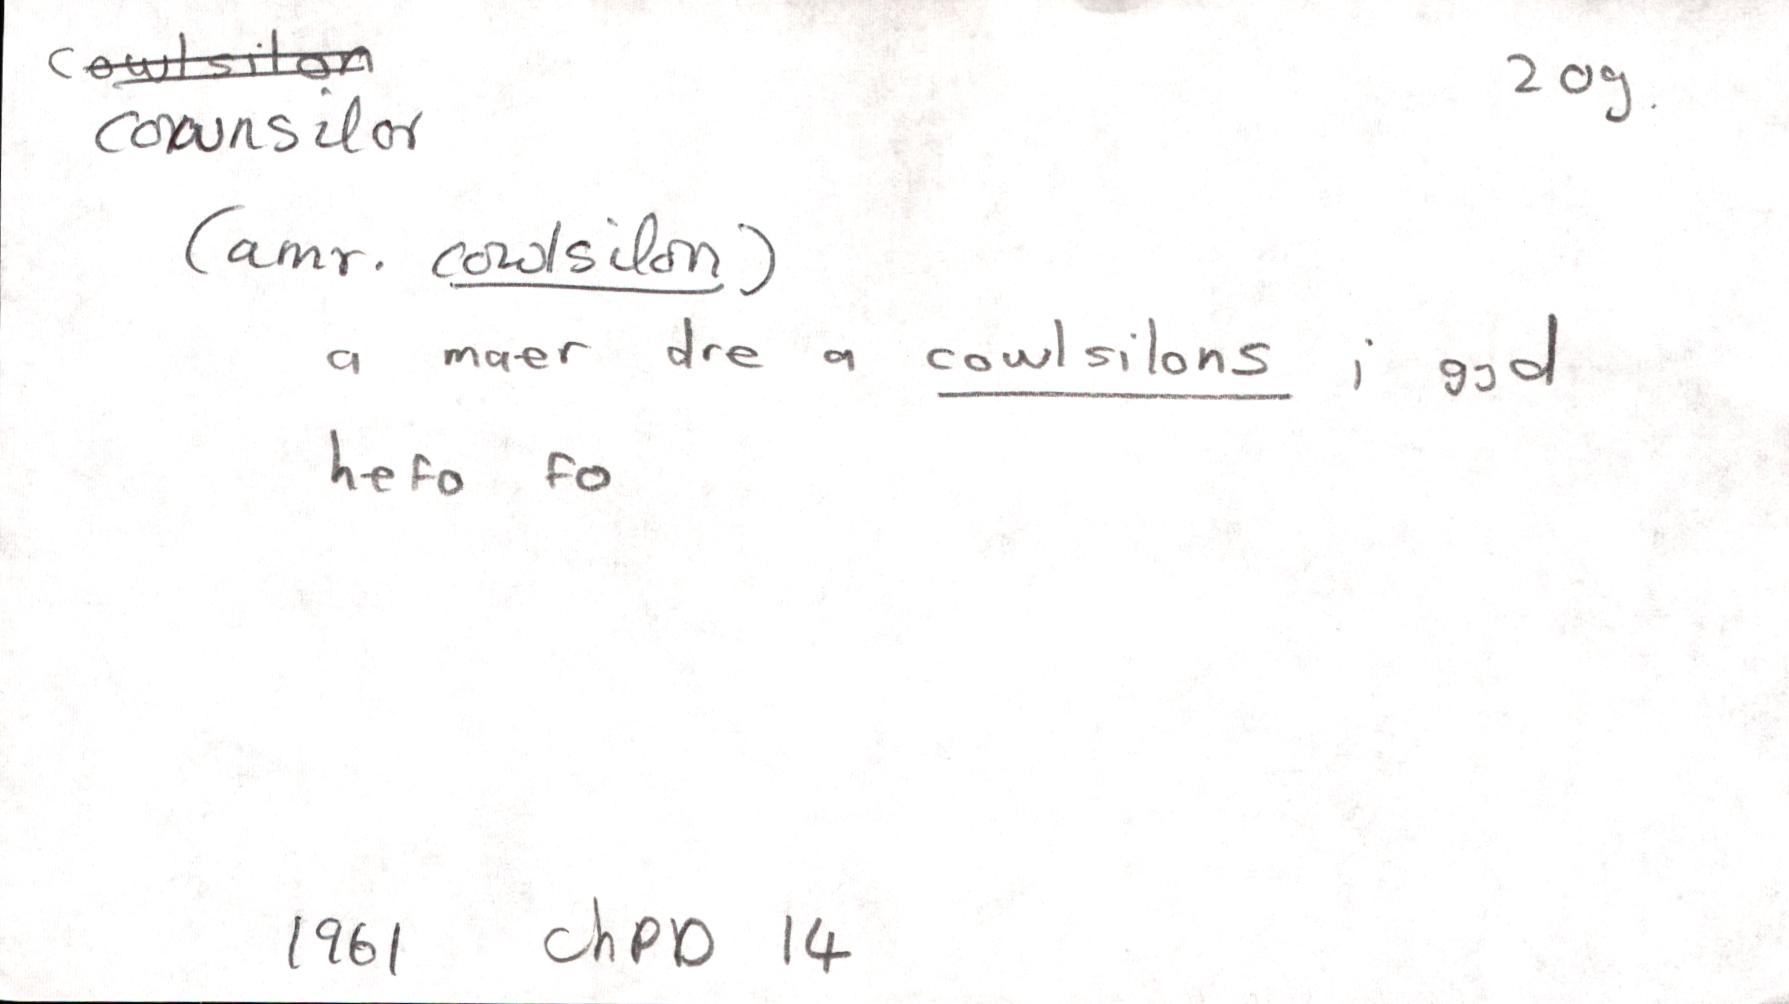 cowlsilon
20g.
cownsilor
(amr. cowlsilon)
a maer dre a cowlsilons i god
hefo fo
1961 ChPD 14